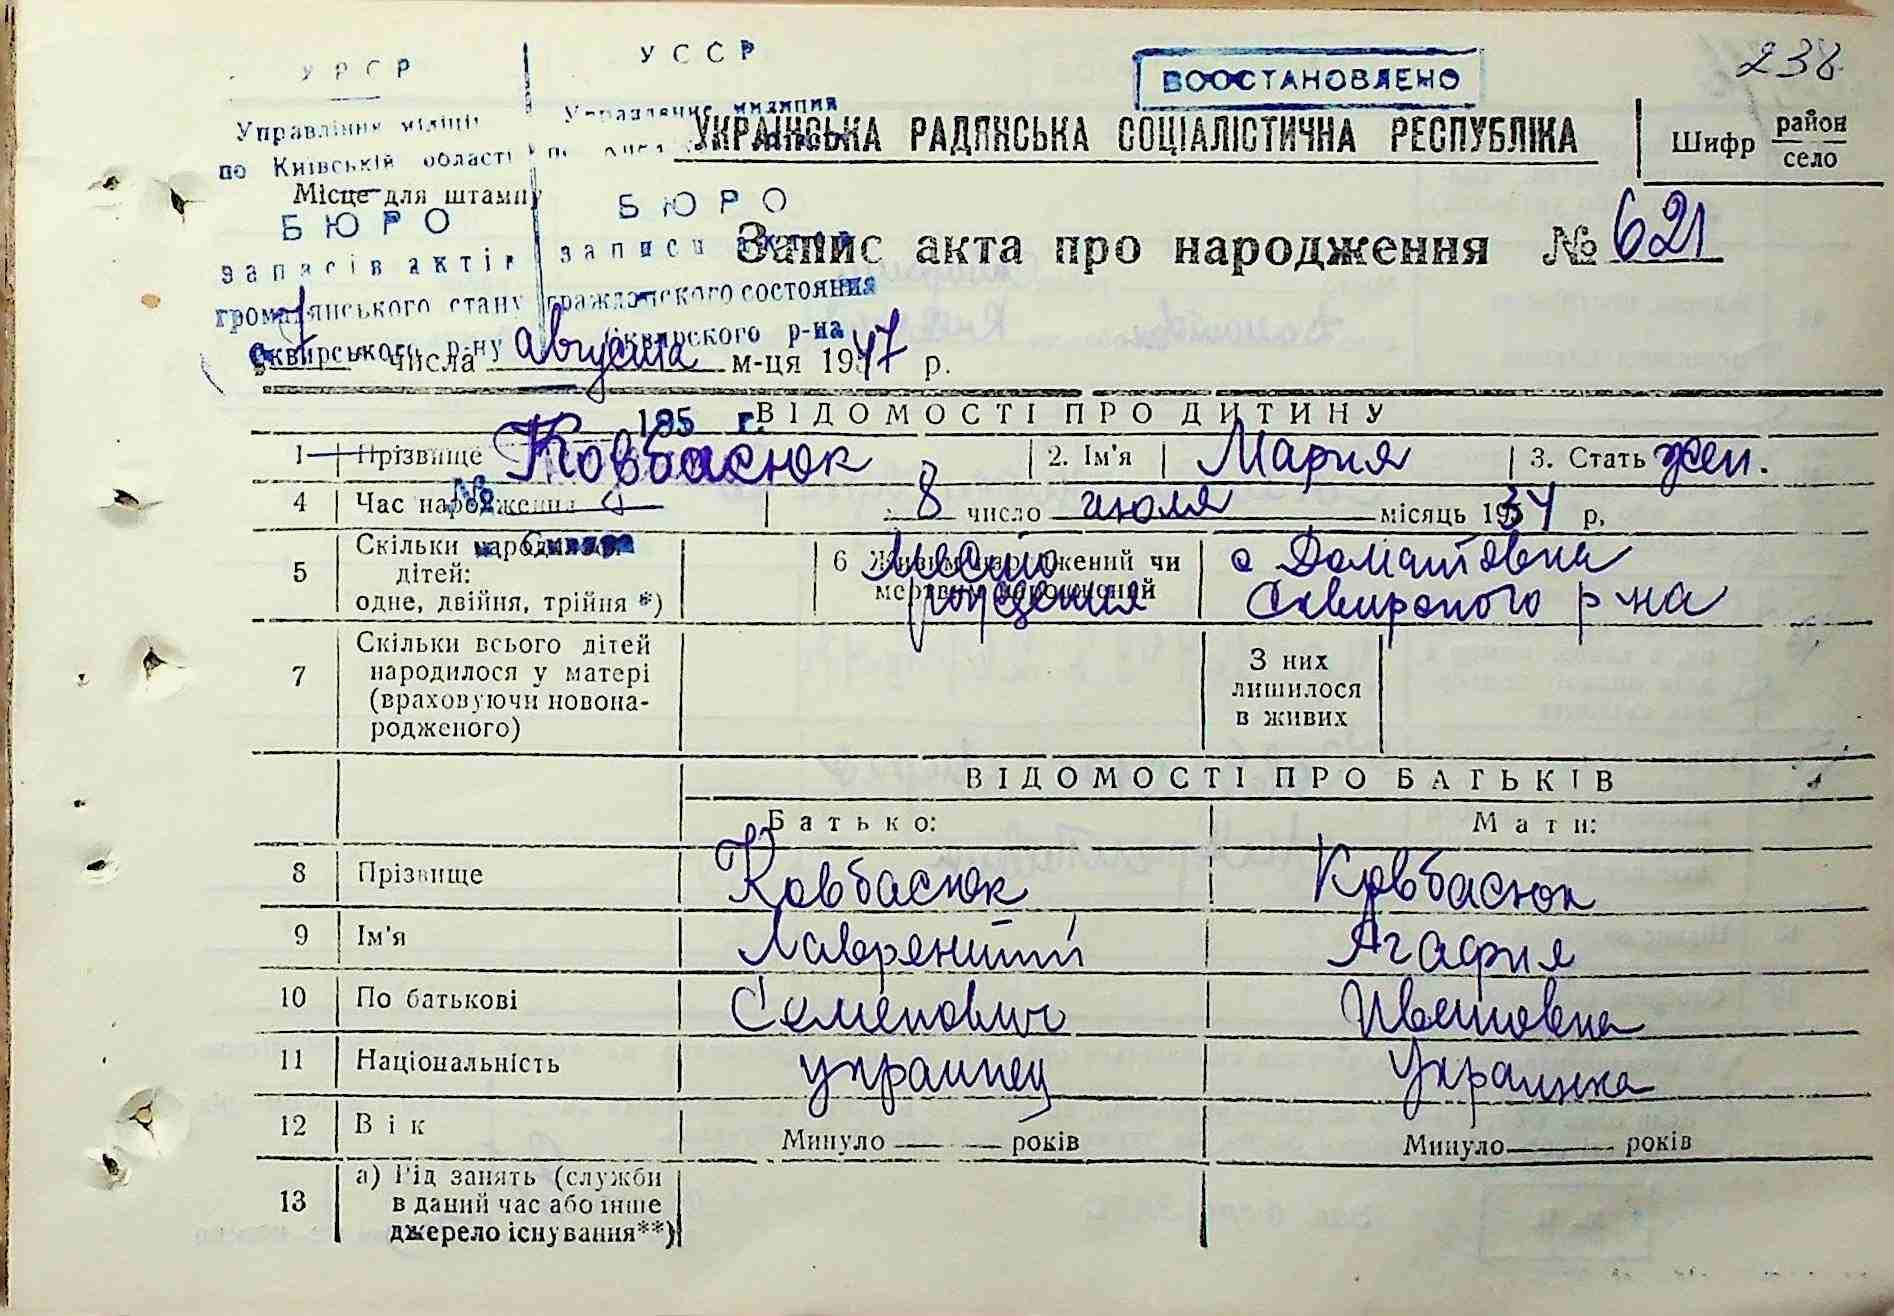 238
У Р С Р
У С С Р
ВОССТАНОВЛЕНО
Управління міліції
по Київській області
Управление милиции
УКРАЇНСЬКА РАДЯНСЬКА СОЦІАЛІСТИЧНА РЕСПУБЛІКА
Шифр район
село
Місце для штампу
Б Ю Р О
записів актів
громадянського стану
Сквирського р-ну
Б Ю Р О
записи актов
гражданского состояния
Сквирского р-на
Запис акта про народження № 621
7 числа августа м-ця 1947 р.
195 г.
ВІДОМОСТІ ПРО ДИТИНУ
1 Прізвище Ковбасюк 2. Ім'я Мария 3. Стать жен.
№
4 Час народження 8 число июля місяць 1934 р.
г. Сквира
5 Скільки народилось
дітей:
одне, двійня, трійня *)
6 Живим народжений чи
мертвим народжений
Место
рождения
с Домантовка
Сквирского р-на
7 Скільки всього дітей
народилося у матері
(враховуючи новона-
родженого)
З них
лишилося
в живих
ВІДОМОСТІ ПРО БАТЬКІВ
Батько: Мати:
8 Прізвище Ковбасюк Ковбасюк
9 Ім'я Лаврентий Агафия
10 По батькові Семенович Ивановна
11 Національність украинец Украинка
12 Вік Минуло років Минуло років
13 а) Рід занять (служби
в даний час або інше
джерело існування**)